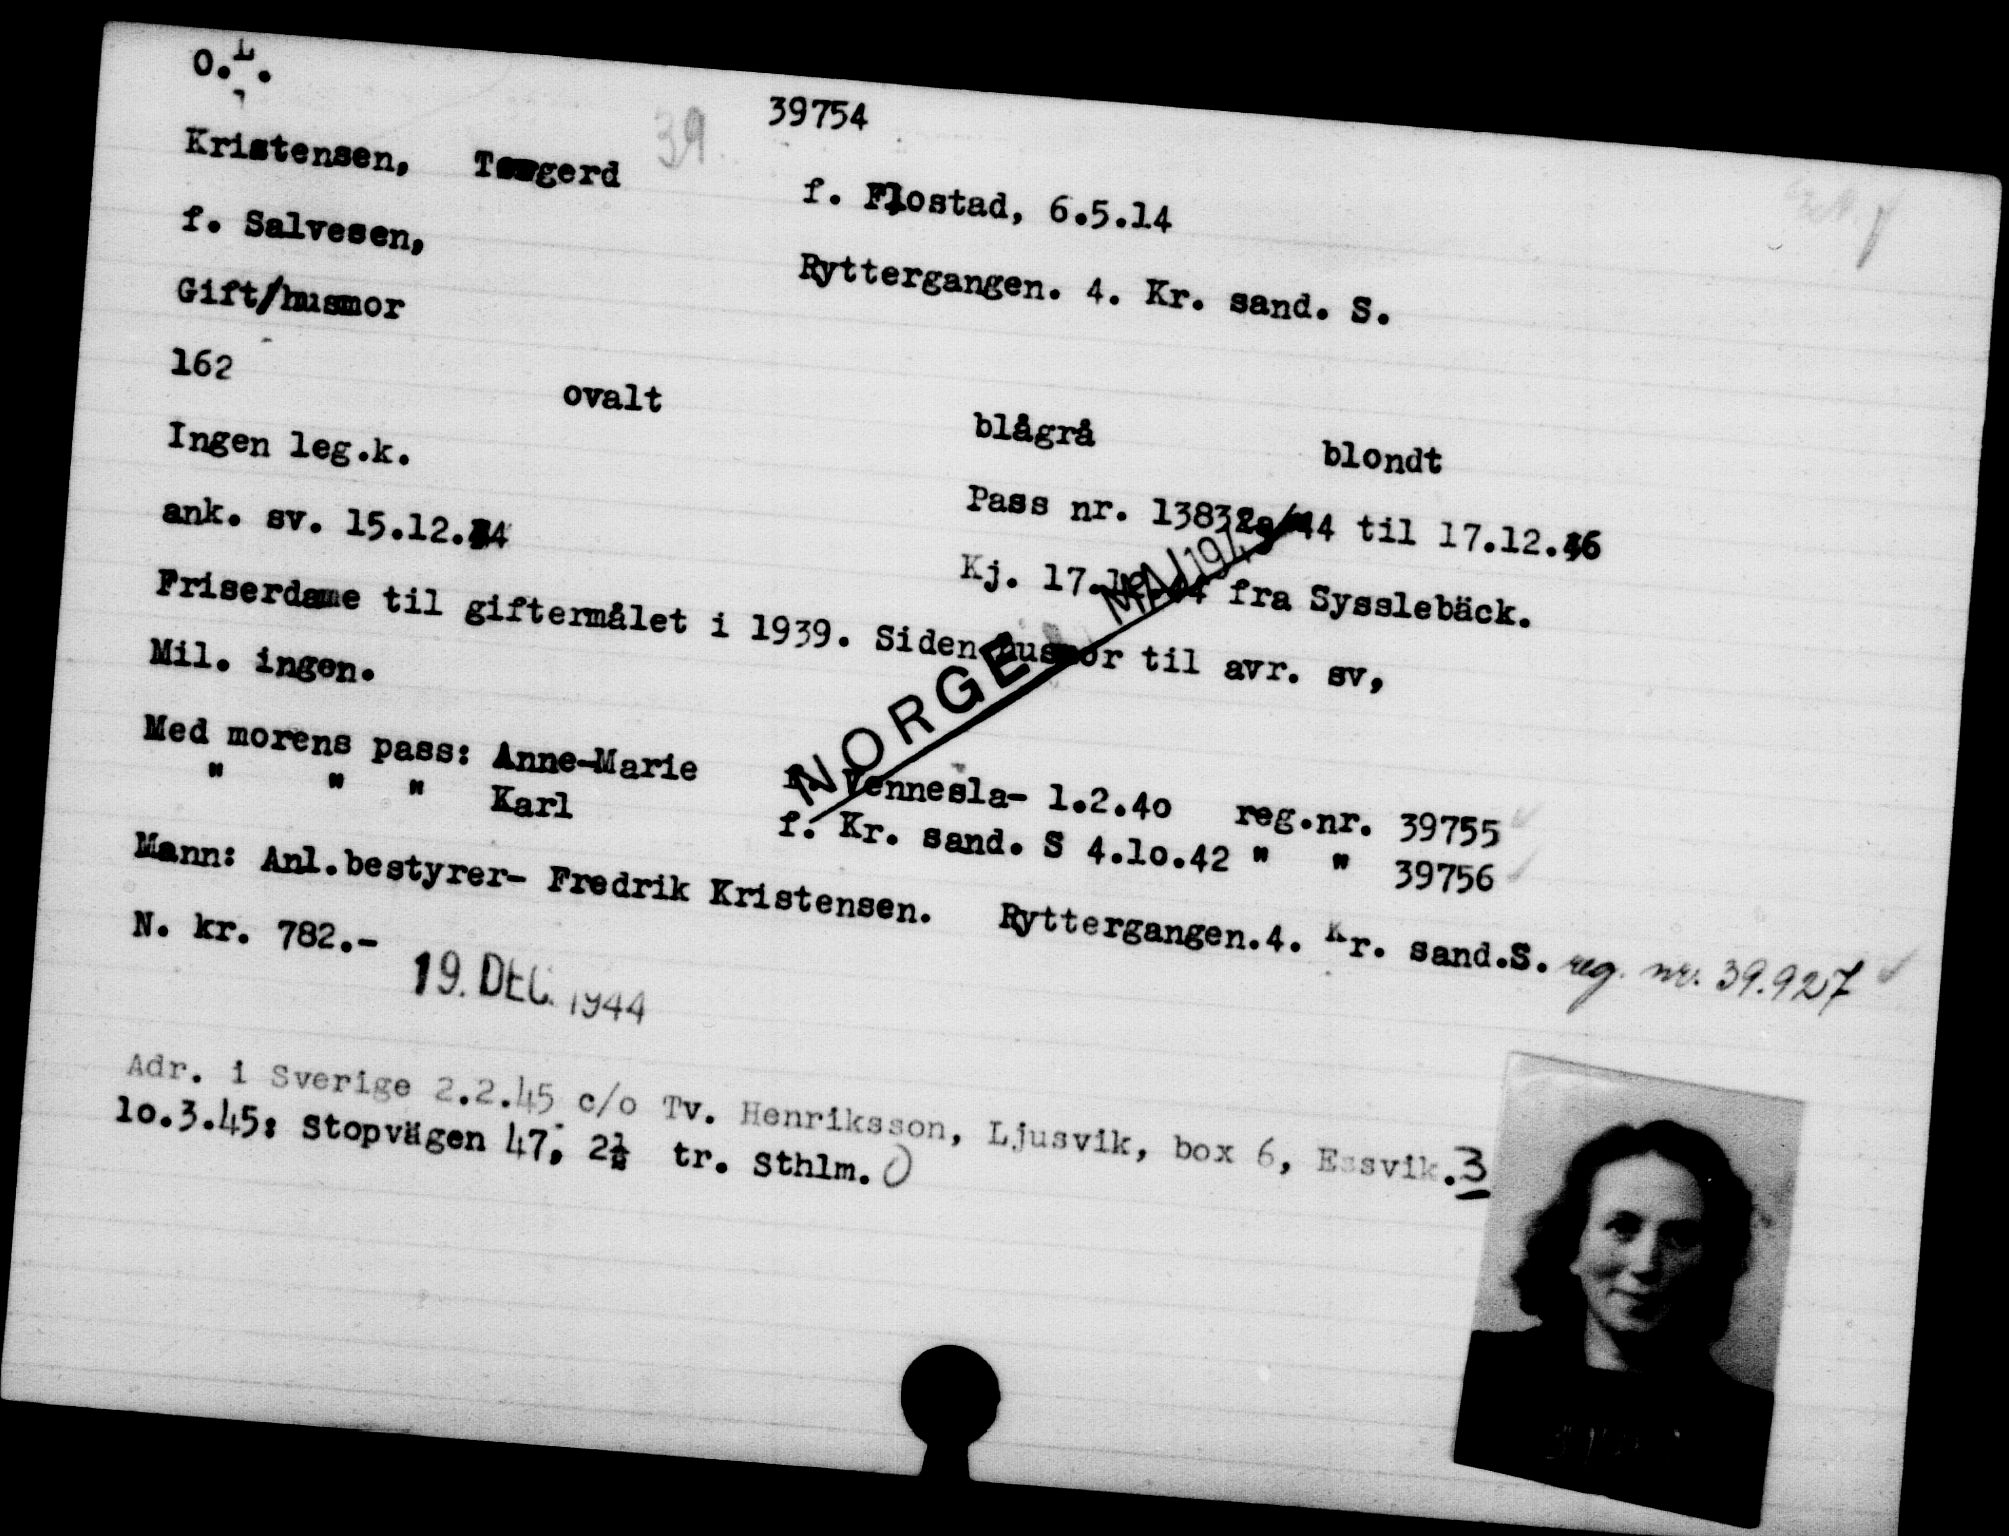 O.L.
39754
Kristensen, Torgerd 39
f. Flostad, 6.5.14
f. Salvesen,
Ryttergangen. 4. Kr. sand. S.
Gift/husmor
162 ovalt blågrå blondt
Ingen leg.k.
Pass nr. 13832a/44 til 17.12.46
ank. sv. 15.12.44
Kj. 17.12.44 fra Sysslebäck.
Friserdame til giftermålet i 1939. Siden husmor til avr. sv,
Mil. ingen.
NORGE MAI 194
Med morens pass: Anne-Marie f. Vennesla- 1.2.4o reg.nr. 39755
" " " Karl f. Kr. sand. S 4.1o.42 " " 39756
Mann: Anl.bestyrer- Fredrik Kristensen. Ryttergangen.4. Kr. sand.S. reg. nr. 39.927
N. kr. 782.-
19. DEC. 1944
Adr. i Sverige 2.2.45 c/o Tv. Henriksson, Ljusvik, box 6, Essvik.3
1o.3.45: Stopvägen 47, 2½ tr. Sthlm.